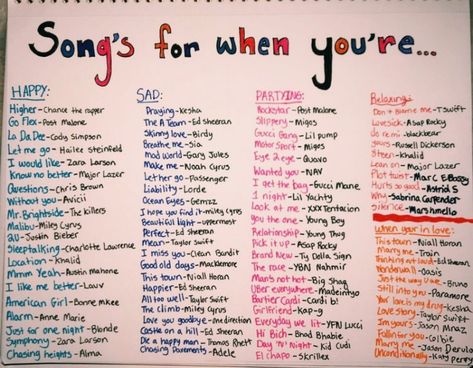 Song's for when you're...
HAPPY:
Higher-Chance the rapper
Go Flex-Post Malone
La Da Dee-Cody Simpson
Let me go-Hailee Steinfeld
I would like-Zara Larson
Know no better-Major Lazer
Questions-Chris Brown
Without you-Avicii
Mr. Brightside-The killers
Malibu-Miley Cyrus
2U-Justin Bieber
Sleeptalking-Charlotte Lawrence
Location-Khalid
Mmm Yeah-Austin Mahone
I like me better-Lauv
American Girl-Bonnie Mkee
Alarm-Anne Marie
Just for one night-Blonde
Symphony-Zara Larson
Chasing heights-Alma
SAD:
Praying-Kesha
The A Team-Ed sheeran
Skinny love-Birdy
Breathe me-Sia
Mad World-Gary Jules
Make me-Noah Cyrus
Let her go-Passenger
Liability-Lorde
Ocean Eyes-
I hope you find it-miley Cyrus
Beautiful light-uppermost
Perfect-Ed sheeran
Mean-Taylor Swift
I miss you-Clean Bandit
Good old days-Macklemore
This town-Niall Horan
Happier-Ed sheeran
All too well-Taylor Swift
The climb-Miley cyrus
Love you goodbye-One direction
Castle on a hill-Ed Sheeran
Die a happy man-Thomas Rhett
Chasing Pavements-Adele
PARTYING:
Rockstar-Post Malone
Slippery-Migos
Gucci Gang-Lil pump
Motor Sport-Migos
Eye 2 eye-Quavo
Wanted you-NAV
I get the bag-Gucci Mane
1 night-Lil Yachty
Look at me-XXXTentacion
you the one-Young Boy
Relationship-Young Thug
Pick it up-Asap Rocky
Brand New-Ty Dolla Sign
The race-YBN Nahmir
Man's not hot-Big Shaq
Uber everywhere-Madeintyo
Bartier Cardi-Cardi b!
Girlfriend-Kap-g
Everyday we lit-YFN Lucci
Hi Bich-Bhad Bhabie
Day 'n' Night-Kid Cudi
El Chapo-Skrillex
Relaxing:
Don't Blame me-T.Swift
Lovesick-Asap Rocky
do re mi-blackbear
yours-Russell Dickerson
8teen-Khalid
Lean on-Major Lazer
Plot twist-Marc E Bassy
Hurts so good-Astrid S
Why-Sabrina Carpenter
Silence-Marshmello
When your in love:
This town-Niall Horan
Marry me-Train
Thinking out loud-Ed sheeran
Wonderwall-Oasis
Just the way u are-Bruno
Still into you-Paramore
Your love is my drug-Kesha
Love Story-Taylor Swift
I'm yours-Jason Mraz
Fallin for you-Colbie
Marry me-Jason Derulo
Unconditionally-Katy perry